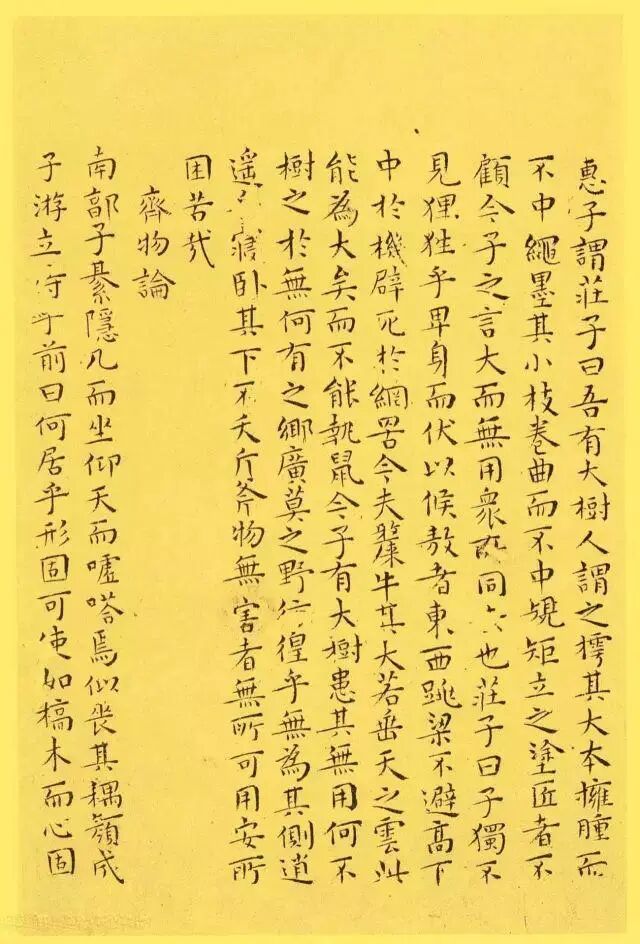 惠子謂莊子曰吾有大樹人謂之樗其大本擁腫而
不中繩墨其小枝卷曲而不中規矩立之塗匠者不
顧今子之言大而無用衆所同去也莊子曰子獨不
見狸狌乎卑身而伏以候敖者東西跳梁不避高下
中於機辟死於網罟今夫斄牛其大若垂天之雲此
能為大矣而不能執鼠今子有大樹患其無用何不
樹之於無何有之鄉廣莫之野彷徨乎無為其側逍
遥乎寢卧其下不夭斤斧物無害者無所可用安所
困苦哉
齊物論
南郭子綦隱几而坐仰天而噓嗒焉似喪其耦顏成
子游立侍乎前曰何居乎形固可使如槁木而心固